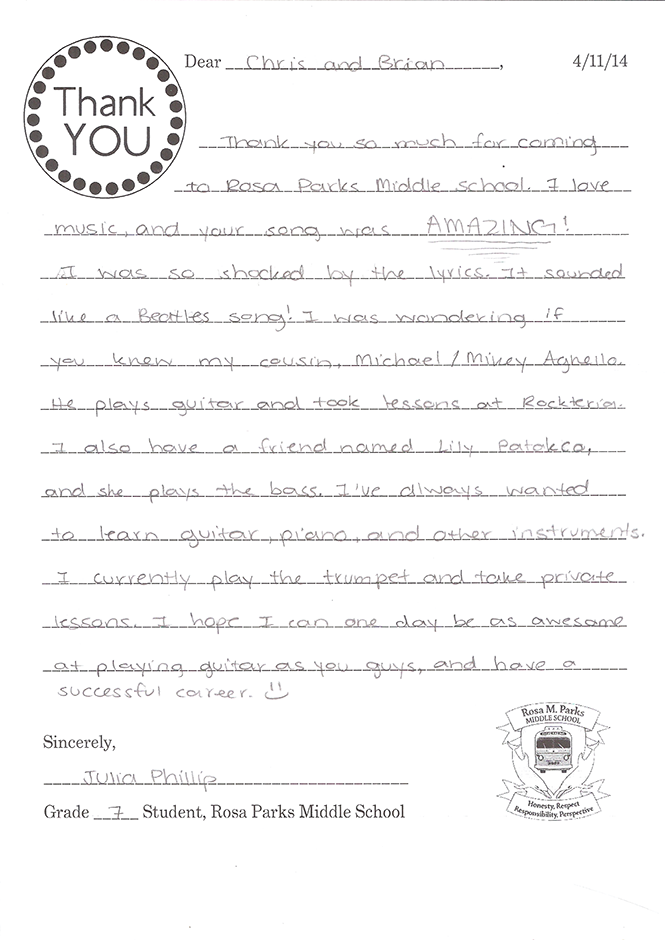 Thank
YOU
Dear Chris and Brian, 4/11/14
Thank you so much for coming
to Rosa Parks Middle school. I love
music, and your song was AMAZING!
I was so shocked by the lyrics. It sounded
like a Beattles song! I was wandering if
you knew my cousin, Michael/Mikey Agnello.
He plays guitar and took lessons at Rockteria.
I also have a friend named Lily Patakca,
and she plays the bass. I've always wanted
to learn guitar, piano, and other instruments.
I currently play the trumpet and take private
lessons. I hope I can one day be as awesome
at playing guitar as you guys, and have a
successful career.
Sincerely,
Julia Phillip
Grade 7 Student, Rosa Parks Middle School
Rosa M. Parks
MIDDLE SCHOOL
Honesty, Respect
Responsibility, Perspective